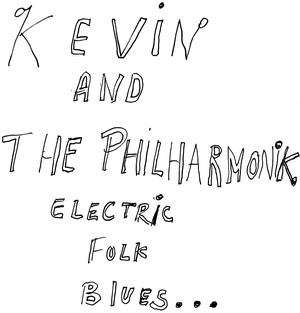 KEViN
AND
THE PHiLHARMONiK
ELECTRiC
FOLK
BLUES...